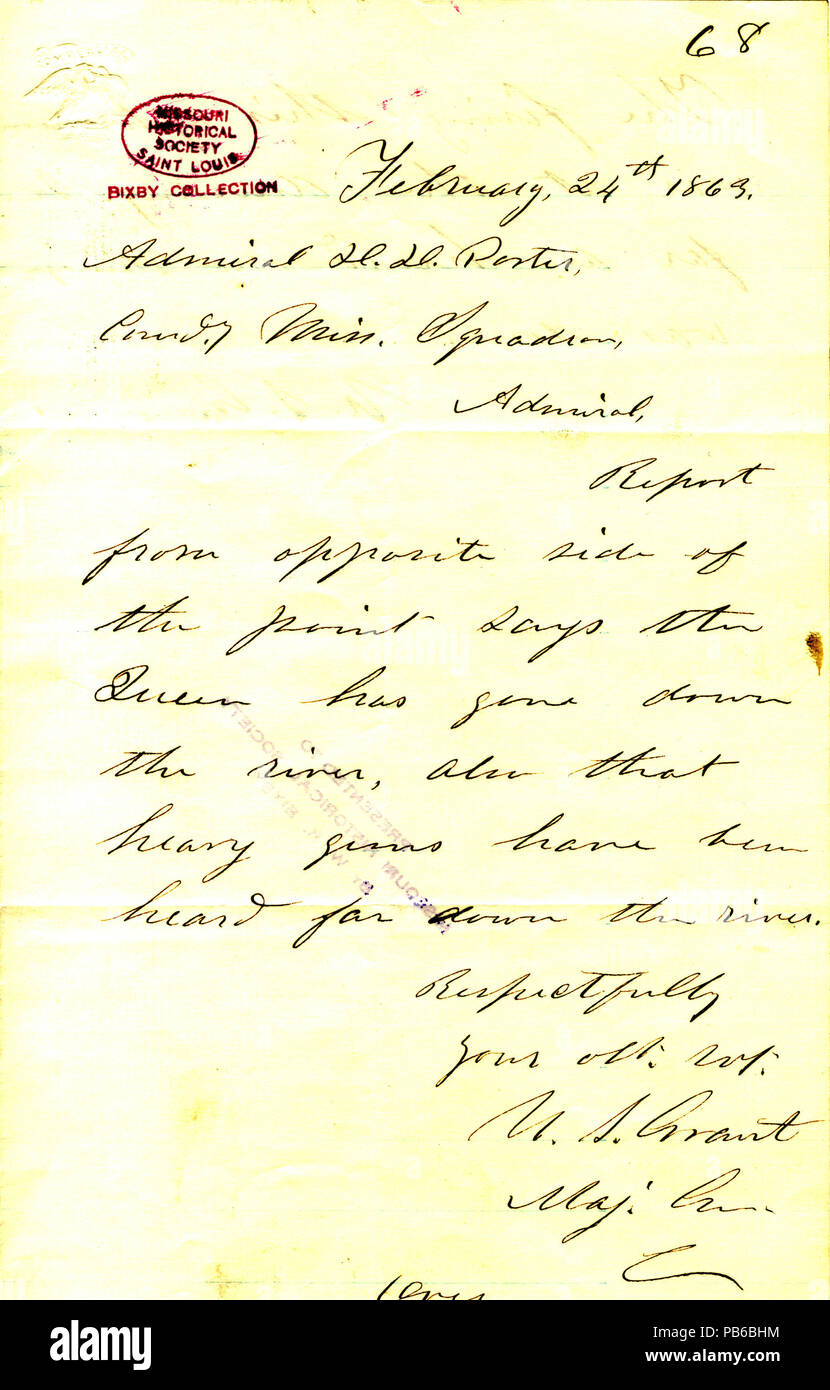 68
MISSOURI
HISTORICAL
SOCIETY
SAINT LOUIS
BIXBY COLLECTION
February, 24th 1863.
Admiral D. D. Porter,
Comd.g Miss. Squadron,
Admiral,
Report
from opposite side of
the point says the
Queen has gone down
the river, also that
heavy guns have been
heard far down the river.
Respectfully
your obt. svt.
U. S. Grant
Maj. Gen.
(over
PRESENTED TO
MISSOURI HISTORICAL SOCIETY
BY W. K. BIXBY
alamy
Image ID: PB6BHM
www.alamy.com